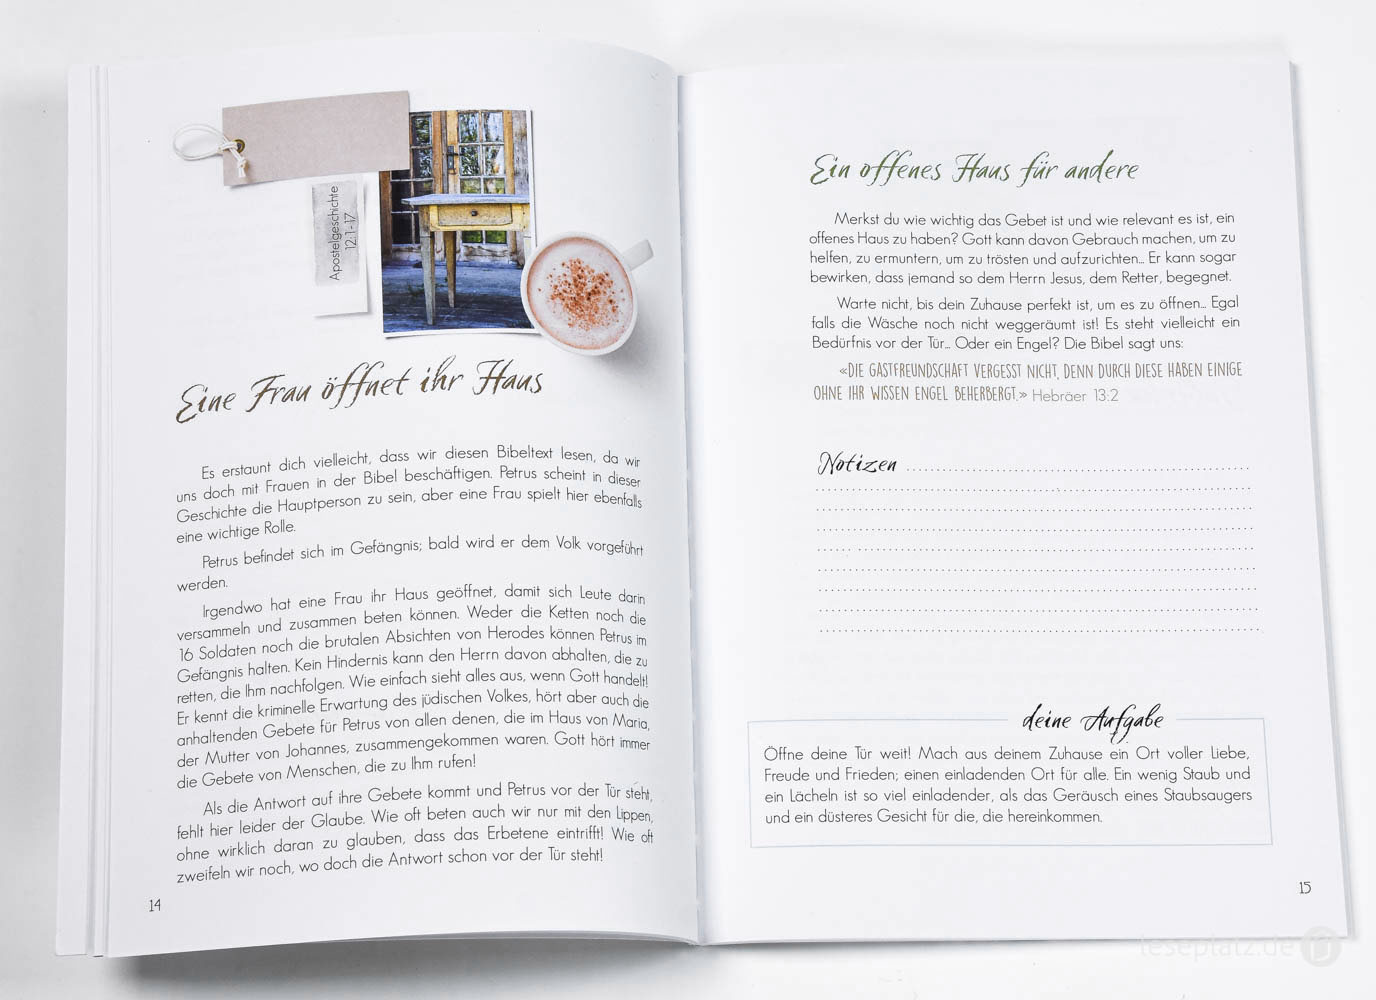 Apostelgeschichte
12:1-17
Eine Frau öffnet ihr Haus
Es erstaunt dich vielleicht, dass wir diesen Bibeltext lesen, da wir
uns doch mit Frauen in der Bibel beschäftigen. Petrus scheint in dieser
Geschichte die Hauptperson zu sein, aber eine Frau spielt hier ebenfalls
eine wichtige Rolle.
Petrus befindet sich im Gefängnis; bald wird er dem Volk vorgeführt
werden.
Irgendwo hat eine Frau ihr Haus geöffnet, damit sich Leute darin
versammeln und zusammen beten können. Weder die Ketten noch die
16 Soldaten noch die brutalen Absichten von Herodes können Petrus im
Gefängnis halten. Kein Hindernis kann den Herrn davon abhalten, die zu
retten, die Ihm nachfolgen. Wie einfach sieht alles aus, wenn Gott handelt!
Er kennt die kriminelle Erwartung des jüdischen Volkes, hört aber auch die
anhaltenden Gebete für Petrus von allen denen, die im Haus von Maria,
der Mutter von Johannes, zusammengekommen waren. Gott hört immer
die Gebete von Menschen, die zu Ihm rufen!
Als die Antwort auf ihre Gebete kommt und Petrus vor der Tür steht,
fehlt hier leider der Glaube. Wie oft beten auch wir nur mit den Lippen,
ohne wirklich daran zu glauben, dass das Erbetene eintrifft! Wie oft
zweifeln wir noch, wo doch die Antwort schon vor der Tür steht!
14
Ein offenes Haus für andere
Merkst du wie wichtig das Gebet ist und wie relevant es ist, ein
offenes Haus zu haben? Gott kann davon Gebrauch machen, um zu
helfen, zu ermuntern, um zu trösten und aufzurichten... Er kann sogar
bewirken, dass jemand so dem Herrn Jesus, dem Retter, begegnet.
Warte nicht, bis dein Zuhause perfekt ist, um es zu öffnen... Egal
falls die Wäsche noch nicht weggeräumt ist! Es steht vielleicht ein
Bedürfnis vor der Tür... Oder ein Engel? Die Bibel sagt uns:
«DIE GASTFREUNDSCHAFT VERGESST NICHT, DENN DURCH DIESE HABEN EINIGE
OHNE IHR WISSEN ENGEL BEHERBERGT.» Hebräer 13:2
Notizen
deine Aufgabe
Öffne deine Tür weit! Mach aus deinem Zuhause ein Ort voller Liebe,
Freude und Frieden; einen einladenden Ort für alle. Ein wenig Staub und
ein Lächeln ist so viel einladender, als das Geräusch eines Staubsaugers
und ein düsteres Gesicht für die, die hereinkommen.
15
leseplatz.de